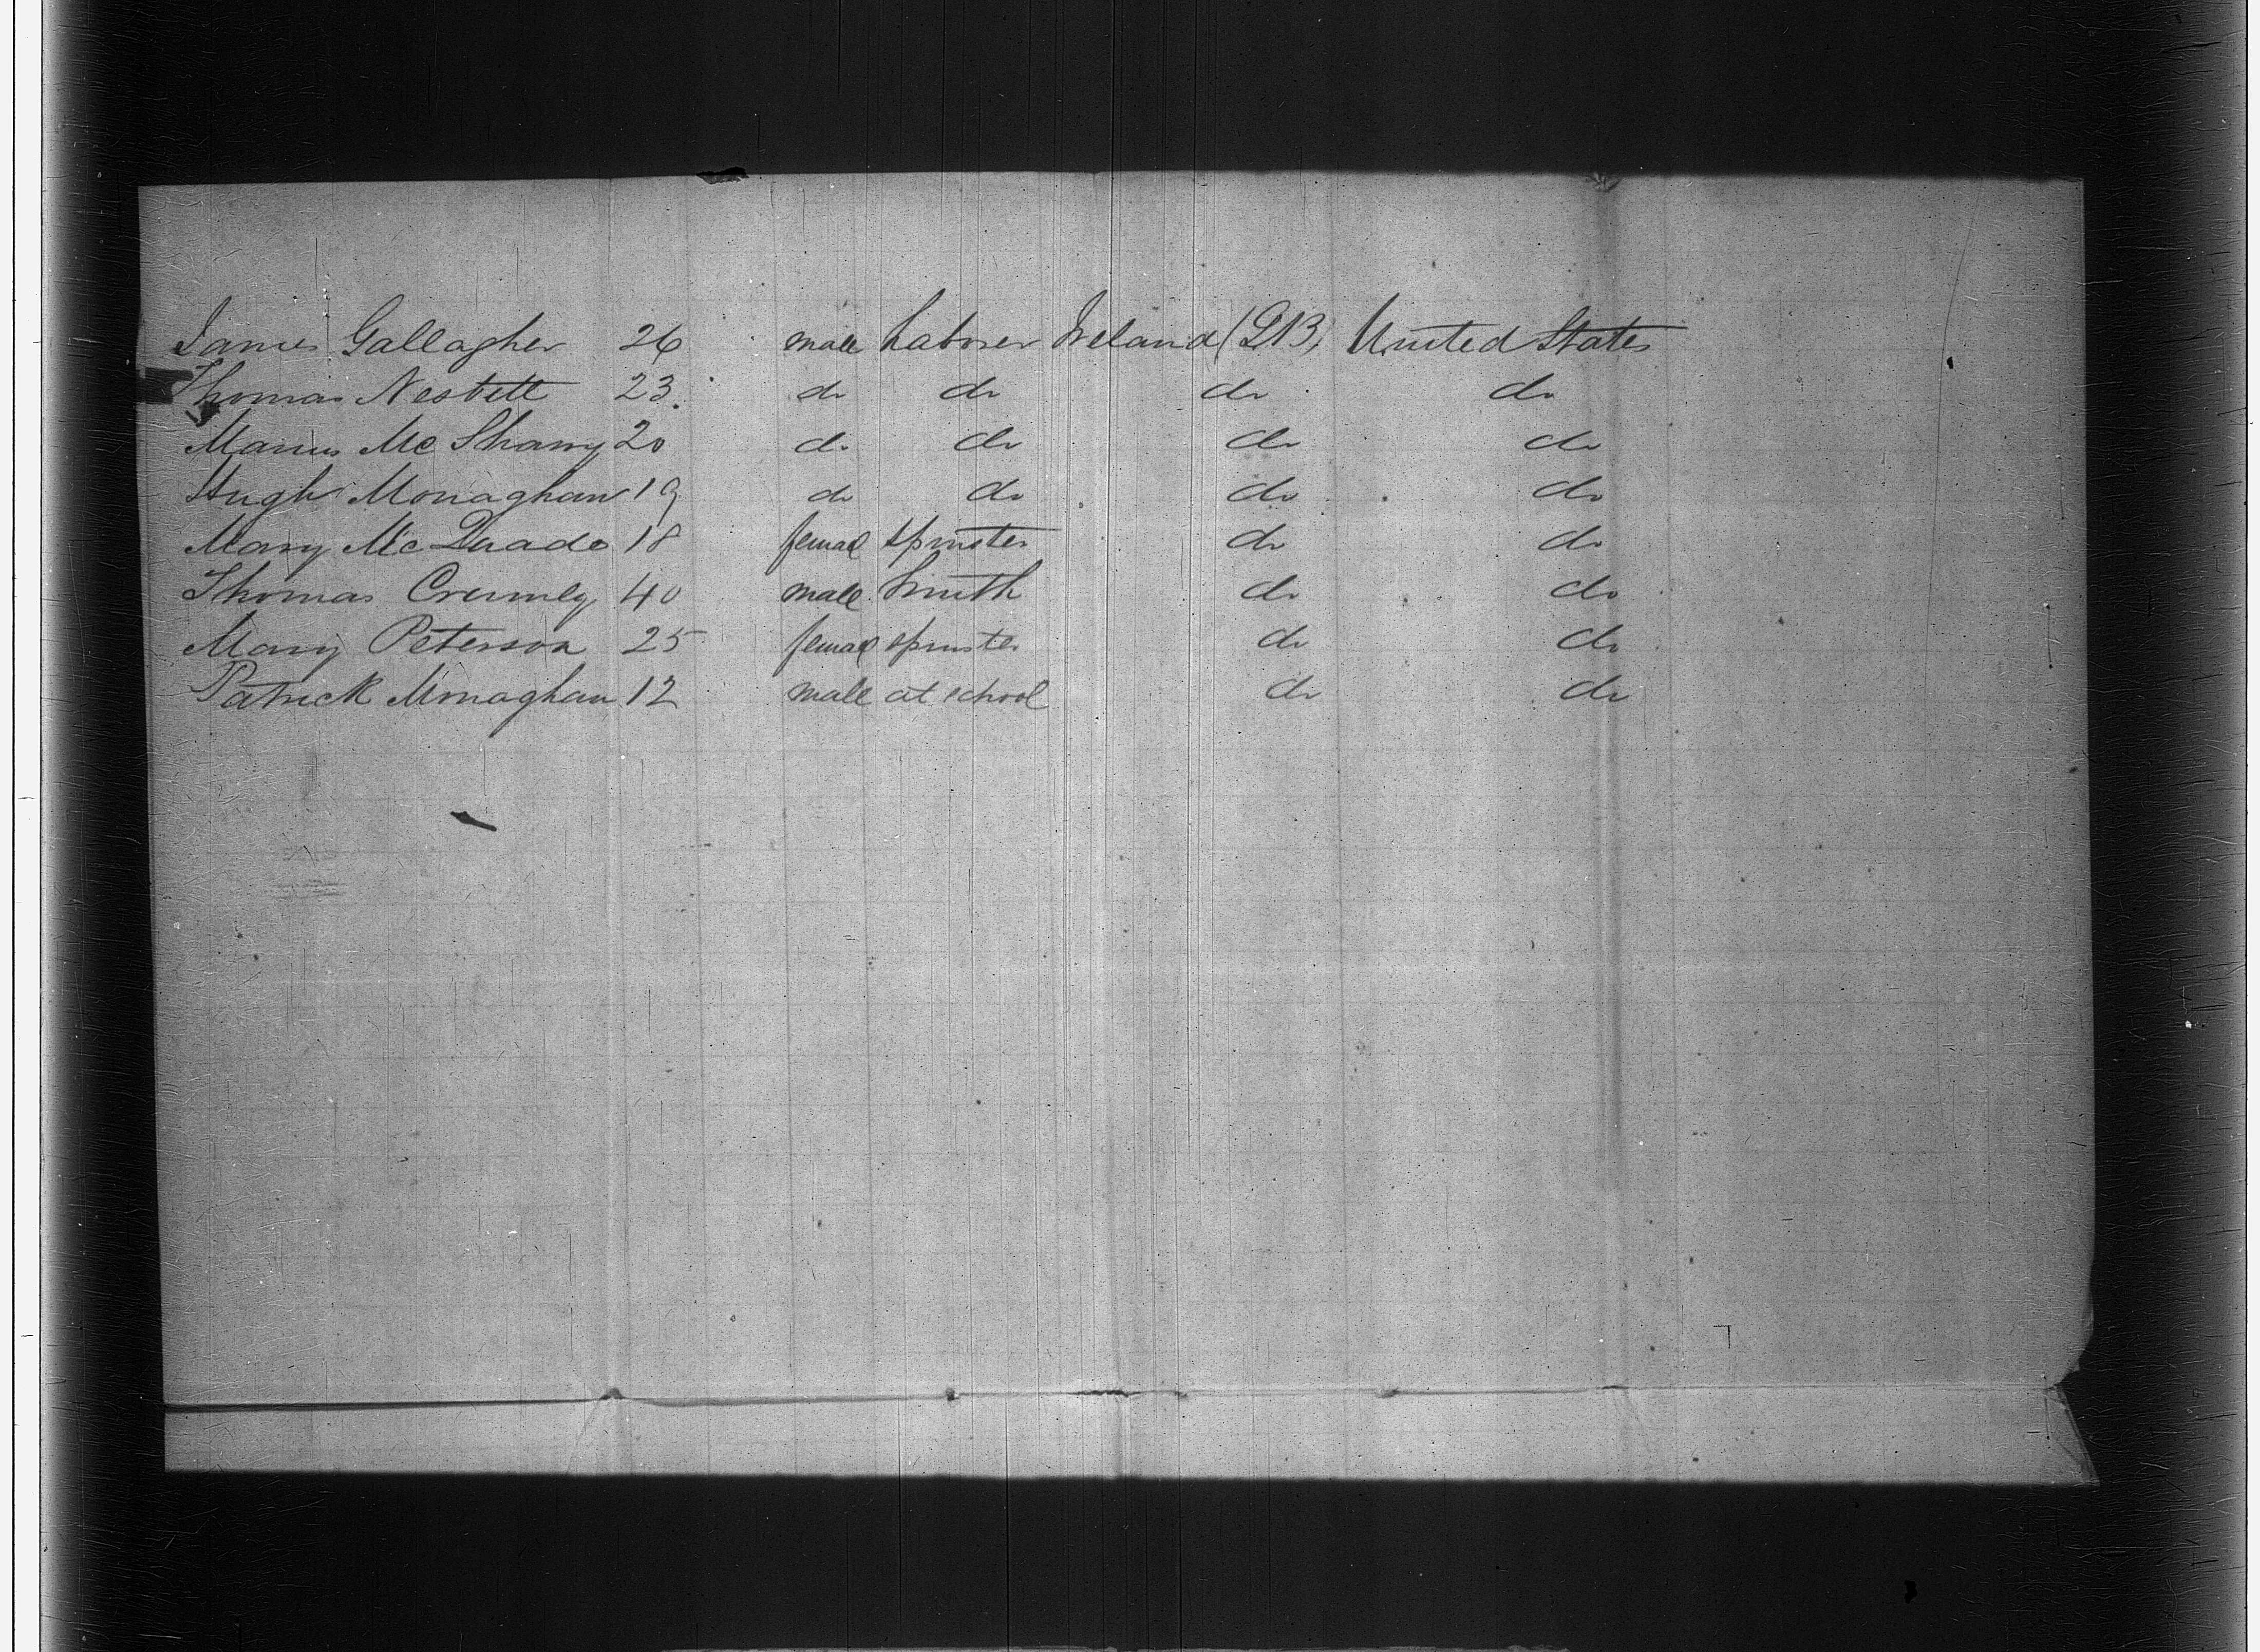 James Gallagher 26 male Laborer Ireland (GB) United States
Thomas Nesbitt 23 do do do do
Manus Mc Sharry 20 do do do do
Hugh Monaghan 19 do do do do
Mary Mc Quade 18 female spinster do do
Thomas Crumly 40 male Smith do do
Mary Peterson 25 female spinster do do
Patrick Monaghan 12 male at school do do